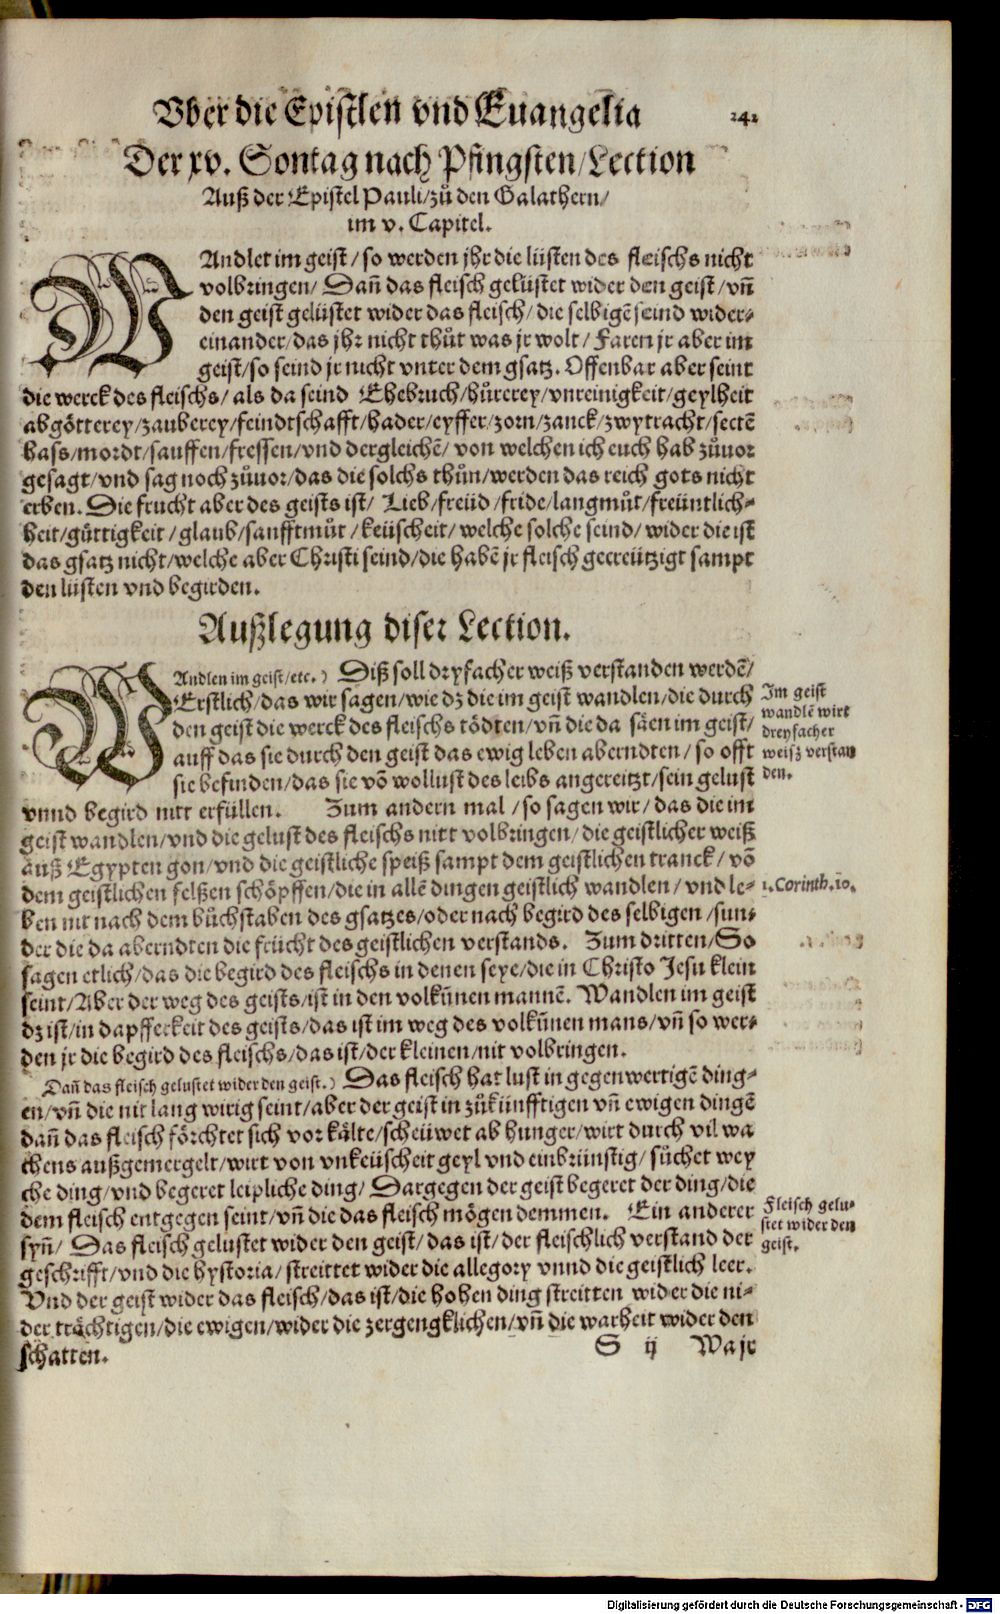 Vber die Epistlen vnd Euangelia 241
Der xv. Sontag nach Pfingsten/Lection
Auß der Epistel Pauli/zů den Galathern/
im v. Capitel.
WAndlet im geist/so werden jhr die lüsten des fleischs nicht
volbringen/ Dañ das fleisch gelüstet wider den geist/vñ
den geist gelüstet wider das fleisch/die selbigē seind wider-
einander/das jhr nicht thůt was jr wolt/ Faren jr aber im
geist/so seind jr nicht vnter dem gsatz. Offenbar aber seint
die werck des fleischs/ als da seind Ehebruch/hůrerey/vnreinigkeit/geylheit
abgötterey/zauberey/feindtschafft/hader/eyffer/zorn/zanck/zwytracht/sectē
hass/mordt/sauffen/fressen/vnd dergleichē/ von welchen ich euch hab zůuor
gesagt/vnd sag noch zůuor/das die solchs thůn/werden das reich gots nicht
erben. Die frucht aber des geists ist/ Lieb/freüd/fride/langmůt/freüntlich-
heit/güttigkeit/glaub/sanfftmůt/keüscheit/welche solche seind/wider die ist
das gsatz nicht/welche aber Christi seind/die habē jr fleisch gecreützigt sampt
den lüsten vnd begirden.
Außlegung diser Lection.
WAndlen im geist/etc.) Diß soll dryfacher weiß verstanden werdē/
Erstlich/das wir sagen/wie dz die im geist wandlen/die durch
den geist die werck des fleischs tödten/vñ die da säen im geist/
auff das sie durch den geist das ewig leben aberndten/so offt
sie befinden/das sie vō wollust des leibs angereitzt/sein gelust
vnnd begird nitt erfüllen. Zum andern mal/so sagen wir/das die im
geist wandlen/vnd die gelust des fleischs nitt volbringen/die geistlicher weiß
auß Egypten gon/vnd die geistliche speiß sampt dem geistlichen tranck/vō
dem geistlichen felßen schöpffen/die in allē dingen geistlich wandlen/vnd le-
ben nit nach dem bůchstaben des gsatzes/oder nach begird des selbigen/sun-
der die da aberndten die frücht des geistlichen verstands. Zum dritten/So
sagen etlich/das die begird des fleischs in denen seye/die in Christo Jesu klein
seint/Aber der weg des geists/ist in den volkům̃nen mannē. Wandlen im geist
dz ist/in dapfferkeit des geists/das ist im weg des volkům̃nen mans/vñ so wer-
den jr die begird des fleischs/das ist/der kleinen/nit volbringen.
Dañ das fleisch gelustet wider den geist.) Das fleisch hat lust in gegenwertigē ding-
en/vñ die nit lang wirig seint/aber der geist in zůkünfftigen vñ ewigen dingē
dañ das fleisch förchtet sich vor kälte/scheüwet ab hunger/wirt durch vil wa
chens außgemergelt/wirt von vnkeüscheit geyl vnd einbrünstig/sůchet wey
che ding/vnd begeret leipliche ding/ Dargegen der geist begeret der ding/die
dem fleisch entgegen seint/vñ die das fleisch mögen demmen. Ein anderer
syñ/ Das fleisch gelustet wider den geist/das ist/der fleischlich verstand der
geschrifft/vnd die hystoria/streittet wider die allegory vnnd die geistlich leer.
Vnd der geist wider das fleisch/das ist/die hohen ding streitten wider die ni-
der trächtigen/die ewigen/wider die zergengklichen/vñ die warheit wider den
schatten.
S ij Wa jr
Im geist
wandlē wirt
dreyfacher
weisz verstan
den.
1. Corinth. 10.
Fleisch gelu-
stet wider den
geist.
Digitalisierung gefördert durch die Deutsche Forschungsgemeinschaft - DFG